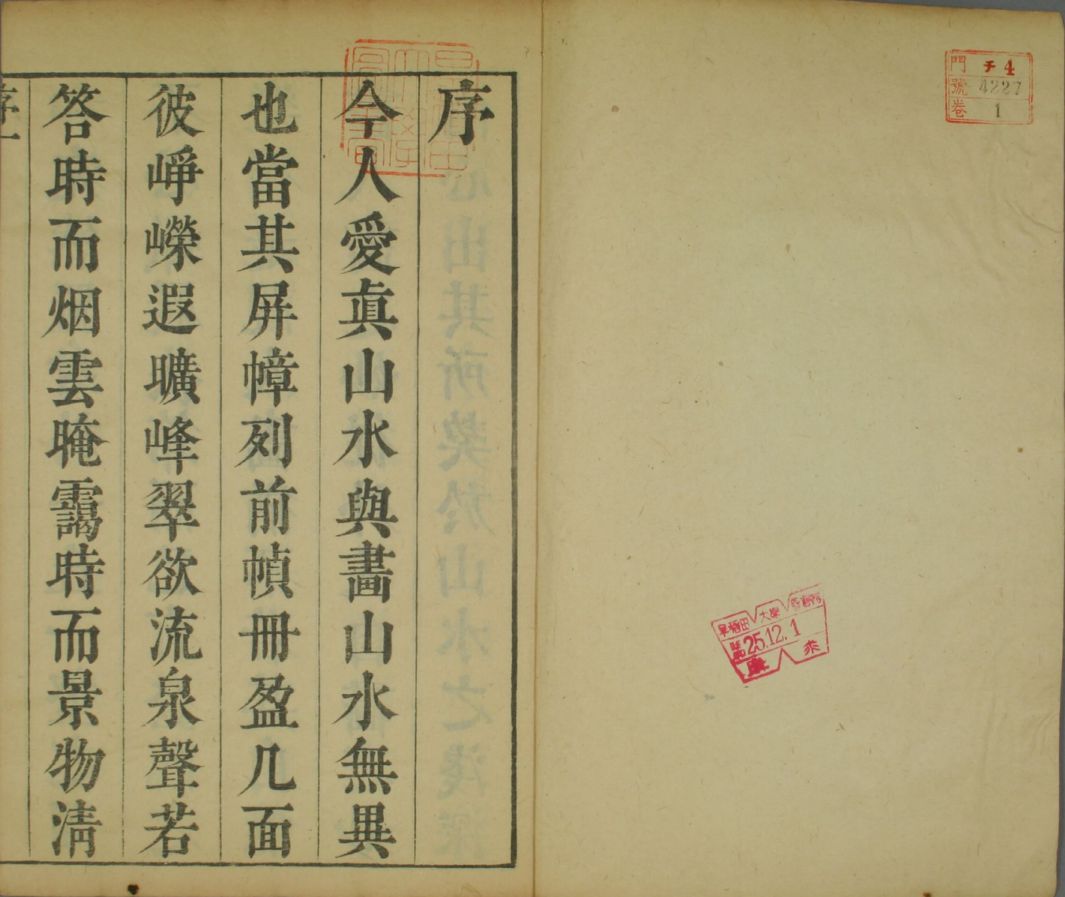 門 チ4
號 4227
卷 1
早稻田大學
25.12.1
序
今人愛真山水與畵山水無異
也當其屏幛列前幀冊盈几面
彼崢嶸遐曠峰翠欲流泉聲若
答時而烟雲晻靄時而景物清
序